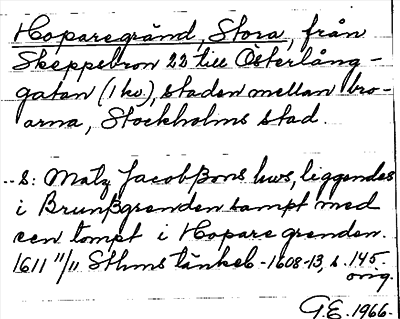 Hoparegränd, Stora, från
Skeppsbron 22 till Österlång-
gatan (1 kv.), staden mellan bro-
arna, Stockholms stad.
s: Matz Jacobßons hws, liggendes
i Brunßgrenden sampt med
een tompt i Hopare grenden.
1611 11/11 Sthms tänkeb. 1608-13, s. 145.
orig.
G.E. 1966.